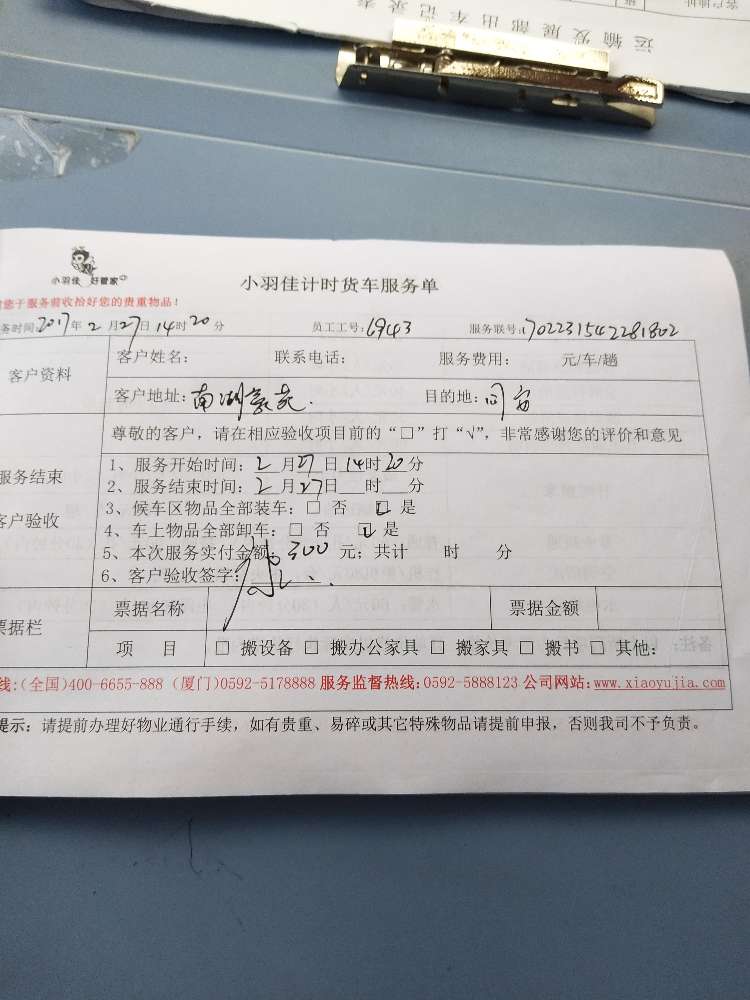 运输发展部出车记录表
客户地址
小羽佳 好管家
小羽佳计时货车服务单
您于服务前收拾好您的贵重物品！
务时间:2017年2月27日14时20分 员工工号:6943 服务联号:1702231542281802
客户资料
客户姓名： 联系电话： 服务费用： 元/车/趟
客户地址:南湖豪苑. 目的地:同安
尊敬的客户，请在相应验收项目前的“□”打“√”，非常感谢您的评价和意见
服务结束
客户验收
1、服务开始时间：2月27日14时20分
2、服务结束时间：2月27日 时 分
3、候车区物品全部装车：□ 否 ☑ 是
4、车上物品全部卸车：□ 否 ☑ 是
5、本次服务实付金额：300 元；共计 时 分
6、客户验收签字：
票据栏
票据名称 票据金额
项 目 □ 搬设备 □ 搬办公家具 □ 搬家具 □ 搬书 □ 其他：
线:(全国)400-6655-888 (厦门)0592-5178888 服务监督热线:0592-5888123 公司网站:www.xiaoyujia.com
提示：请提前办理好物业通行手续，如有贵重、易碎或其它特殊物品请提前申报，否则我司不予负责。